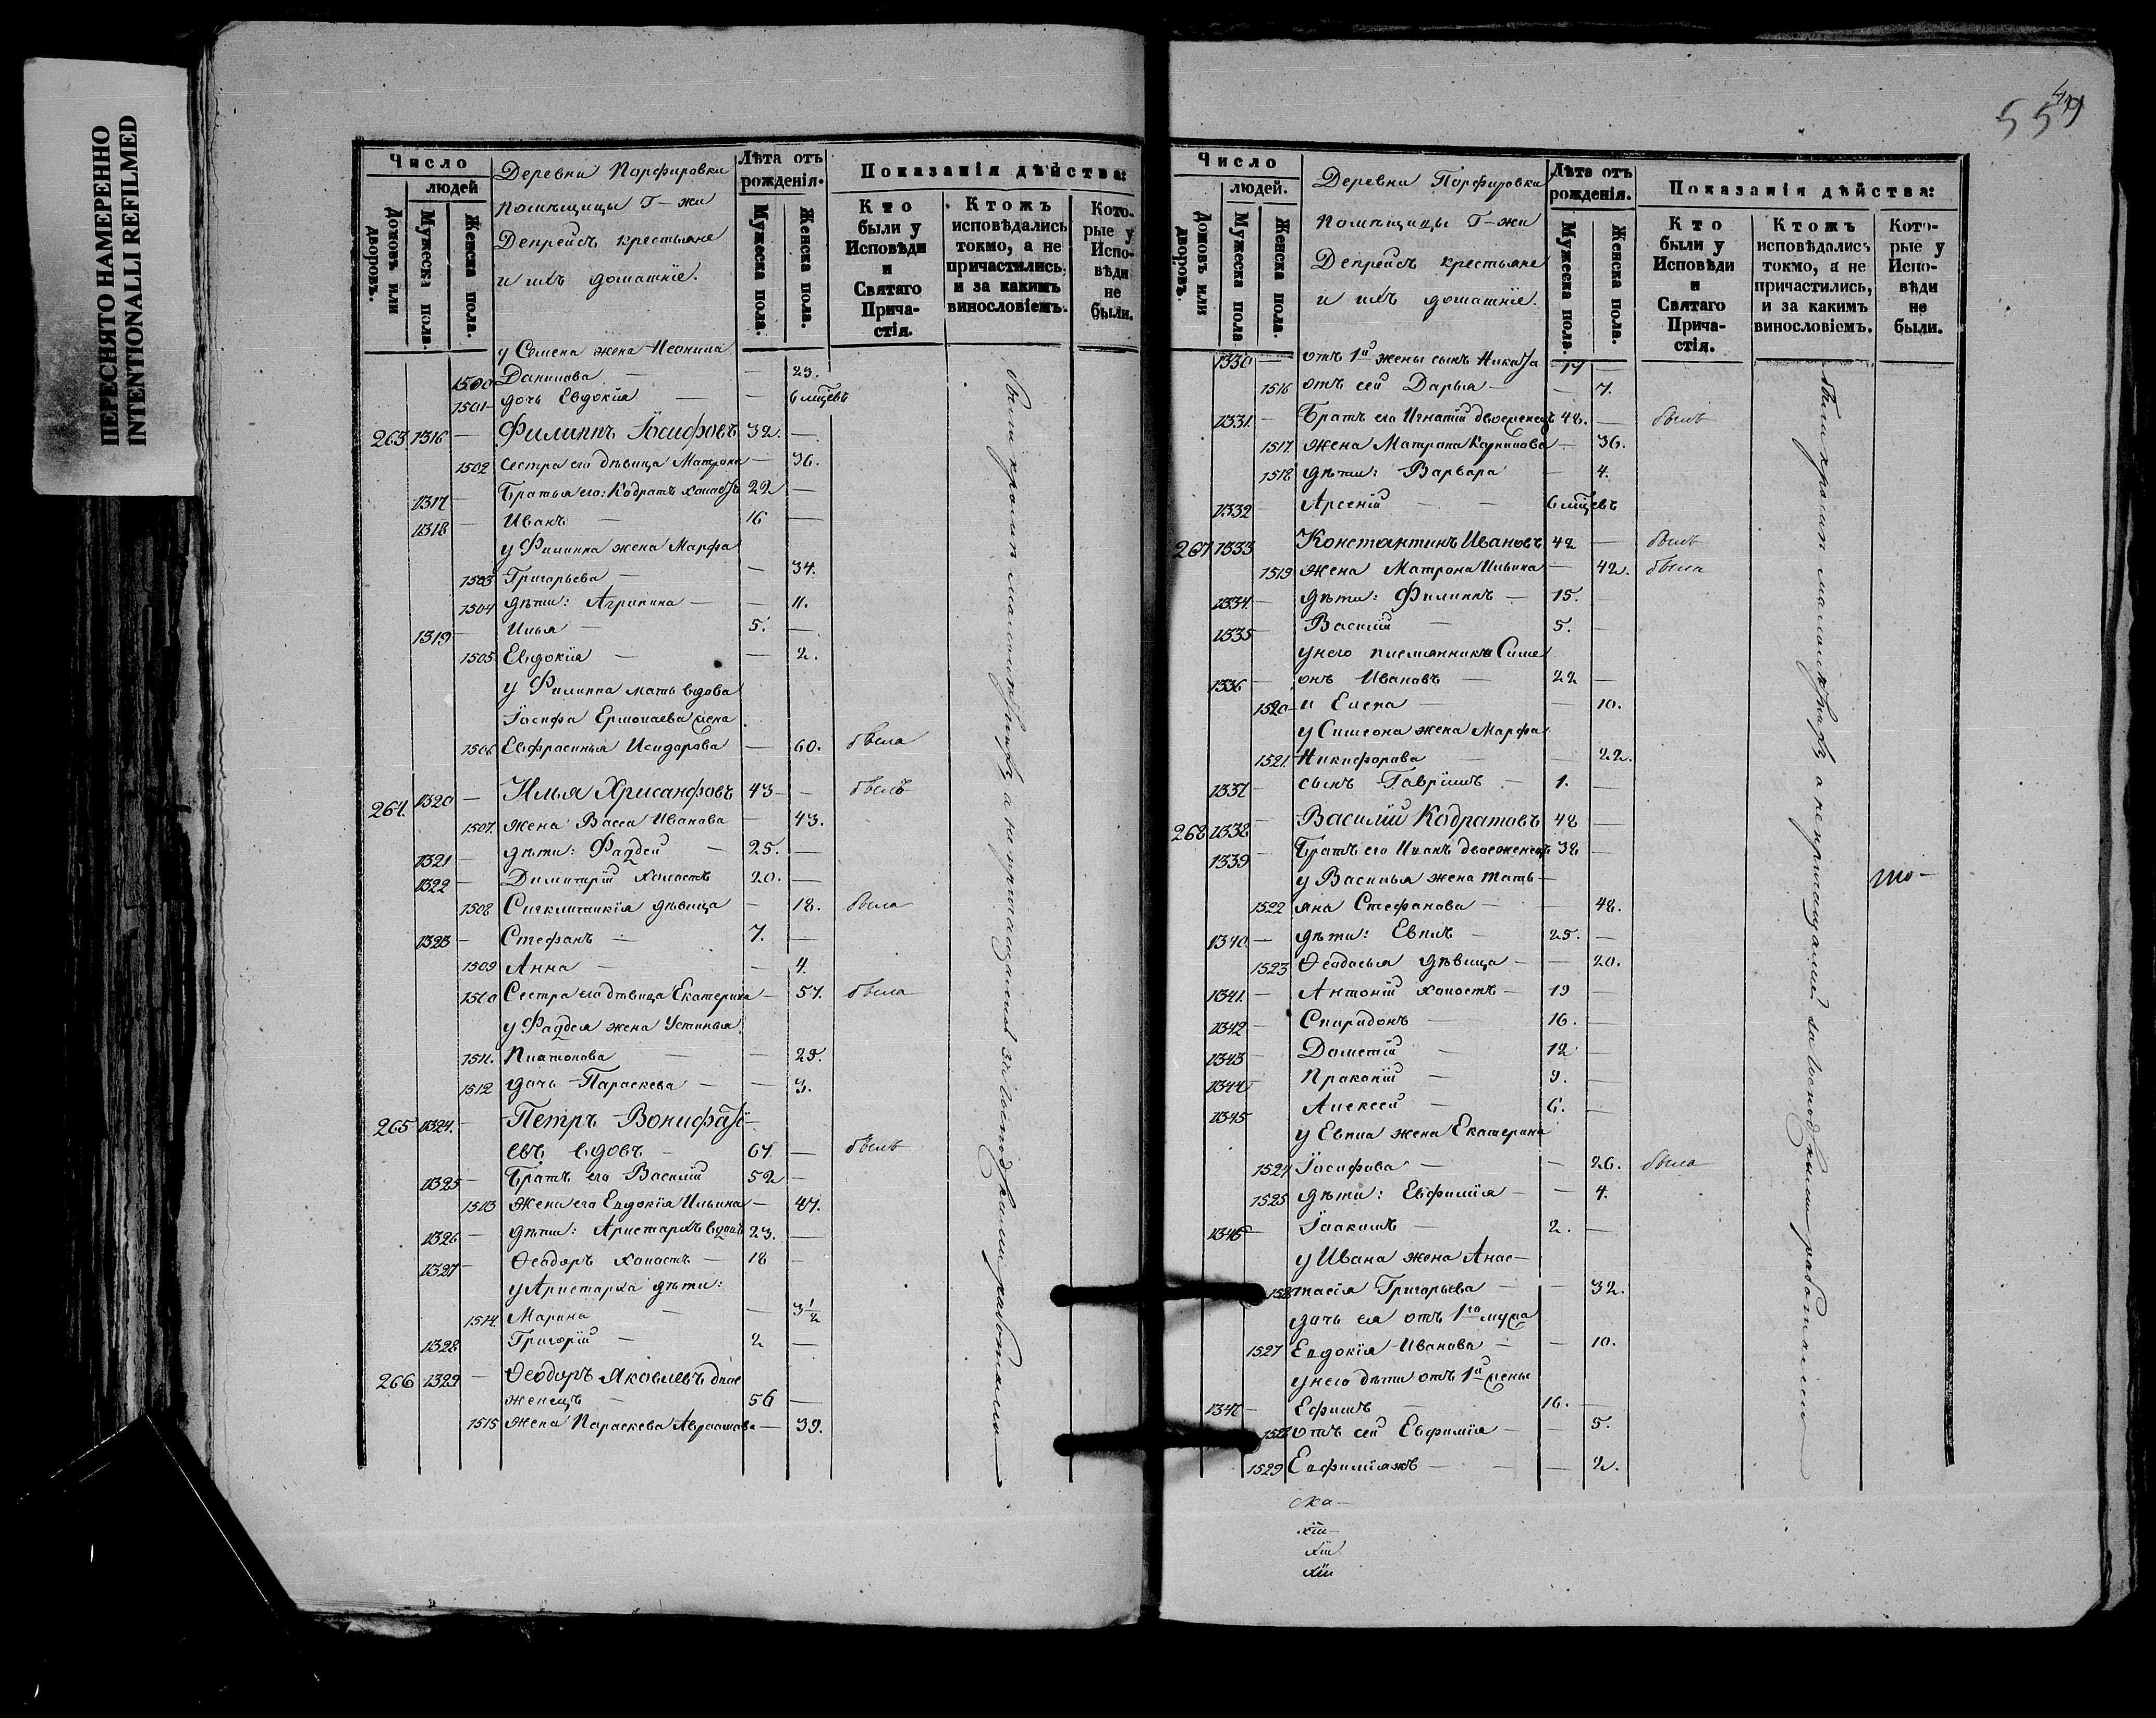 ПЕРЕСНЯТО НАМЕРЕННО
INTENTIONALLI REFILMED
Число
людей
Домовъ или дворовъ.
Мужеска пола.
Женска пола.
Деревни Порфировки
помѣщицы Г-жи
Депрейсъ крестьяне
и ихъ домашніе.
Лѣта отъ рожденія.
Мужеска пола.
Женска пола.
Показанія дѣйства:
Кто были у Исповѣди и Святаго Причастія.
Ктожъ исповѣдались токмо, а не причастились, и за какимъ винословіемъ.
Которые у Исповѣди не были.
у Семена жена Неонила
1500 Данилова — — 23.
1501 дочь Евдокія — — 6 мцевъ
263 1316 — Филиппъ Іосифовъ 32. —
1502 сестра его дѣвица Матрона — 36.
1317 — Братья его: Кодратъ холостъ 22 —
1318 — Иванъ — 16 —
у Филиппа жена Марфа
1503 Григорьева — — 34.
1504 дѣти: Агрипина — — 11.
1319 — Илья — 5. —
1505 Евдокія — — 2.
у Филиппа мать вдова
Іосифа Ермолаева жена
1506 Евфросинья Исидорова — 60. была
264. 1320 — Илья Хрисанфовъ 43 — былъ
1507. жена Васса Иванова — 43.
1321 — дѣти: Фаддей — 25. —
1322 — Димитрій холостъ 20. —
1508 Сигклитикія дѣвица — 18. была
1323 — Стефанъ — 7. —
1509 Анна — — 4.
1510 Сестра его дѣвица Екатерина — 57. была
у Фаддея жена Устинья
1511. Платонова — — 29.
1512 дочь Параскева — — 3.
265 1324. — Петръ Вонифатi-
евъ вдовъ — 67. — былъ
1325 — Братъ его Василій 52 —
1513 Жена его Евдокія Ильина — 47.
1326 — дѣти: Аристархъ вдовъ 23. —
1327 — Ѳеодоръ холостъ — 18 —
у Аристарха дѣти:
1514. Марина — — 3 1/2
1328 Григорій — 2 —
266 1329 — Ѳеодоръ Яковлевъ двое
женецъ — 56 —
1515 жена Параскева Авраамова — 39.
были кромѣ малолѣтнихъ, а не причащались за господскими работами
55
49
Число
людей.
Домовъ или дворовъ.
Мужеска пола
Женска пола.
Деревни Порфировки
помѣщицы Г-жи
Депрейсъ крестьяне
и ихъ домашніе.
Лѣта отъ рожденія.
Мужеска пола.
Женска пола.
Показанія дѣйства:
Кто были у Исповѣди и Святаго Причастія.
Ктожъ исповѣдались токмо, а не причастились, и за какимъ винословіемъ.
Которые у Исповѣди не были.
1330 — отъ 1й жены сынъ Никита 17 —
1516 отъ сей Дарья — — 7.
1331. — Братъ его Игнатій двоеженецъ 48. — былъ
1517. жена Матрона Корнилова — 36.
1518 дѣти: Варвара — 4.
1332 — Арсеній — — 6 мцевъ
267 1333 Константинъ Ивановъ 42 — былъ
1519 жена Матрона Ильина — 42. была
1334. — дѣти: Филиппъ — 15. —
1335 — Василій — 5. —
у него племянники Симе
1336 — онъ Ивановъ — 22 —
1520 и Елена — — 10.
у Симеона жена Марфа
1521. Никифорова — 22.
1337 — сынъ Гавріилъ — 1. —
268 1338 — Василій Кодратовъ 48 —
1339 — Братъ его Иванъ двоеженецъ 38 —
у Василья жена Тать-
1522 яна Стефанова — — 48.
1340 — дѣти: Евпилъ — 25. —
1523 Ѳеодосья дѣвица — — 20.
1341. — Антоній холостъ — 19 —
1342 — Спиридонъ — 16. —
1343 — Дометій — 12 —
1344 Прокопій — 9. —
1345 Алексей — 6. —
у Евпла жена Екатерина
1524 Іосифова — — 26. была
1525 дѣти: Евфимія — — 4.
1346 — Іоакимъ — 2. —
у Ивана жена Анас-
тасія Григорьева — — 32.
дочь ея отъ 1го мужа
1527 Евдокія Иванова — — 10.
у него дѣти отъ 1й жены
1347 — Ефимъ — 16. —
1528 отъ сей Евфимія — — 5.
1529 — — 2.
были кромѣ малолѣтнихъ, а не причащались за господскими работами